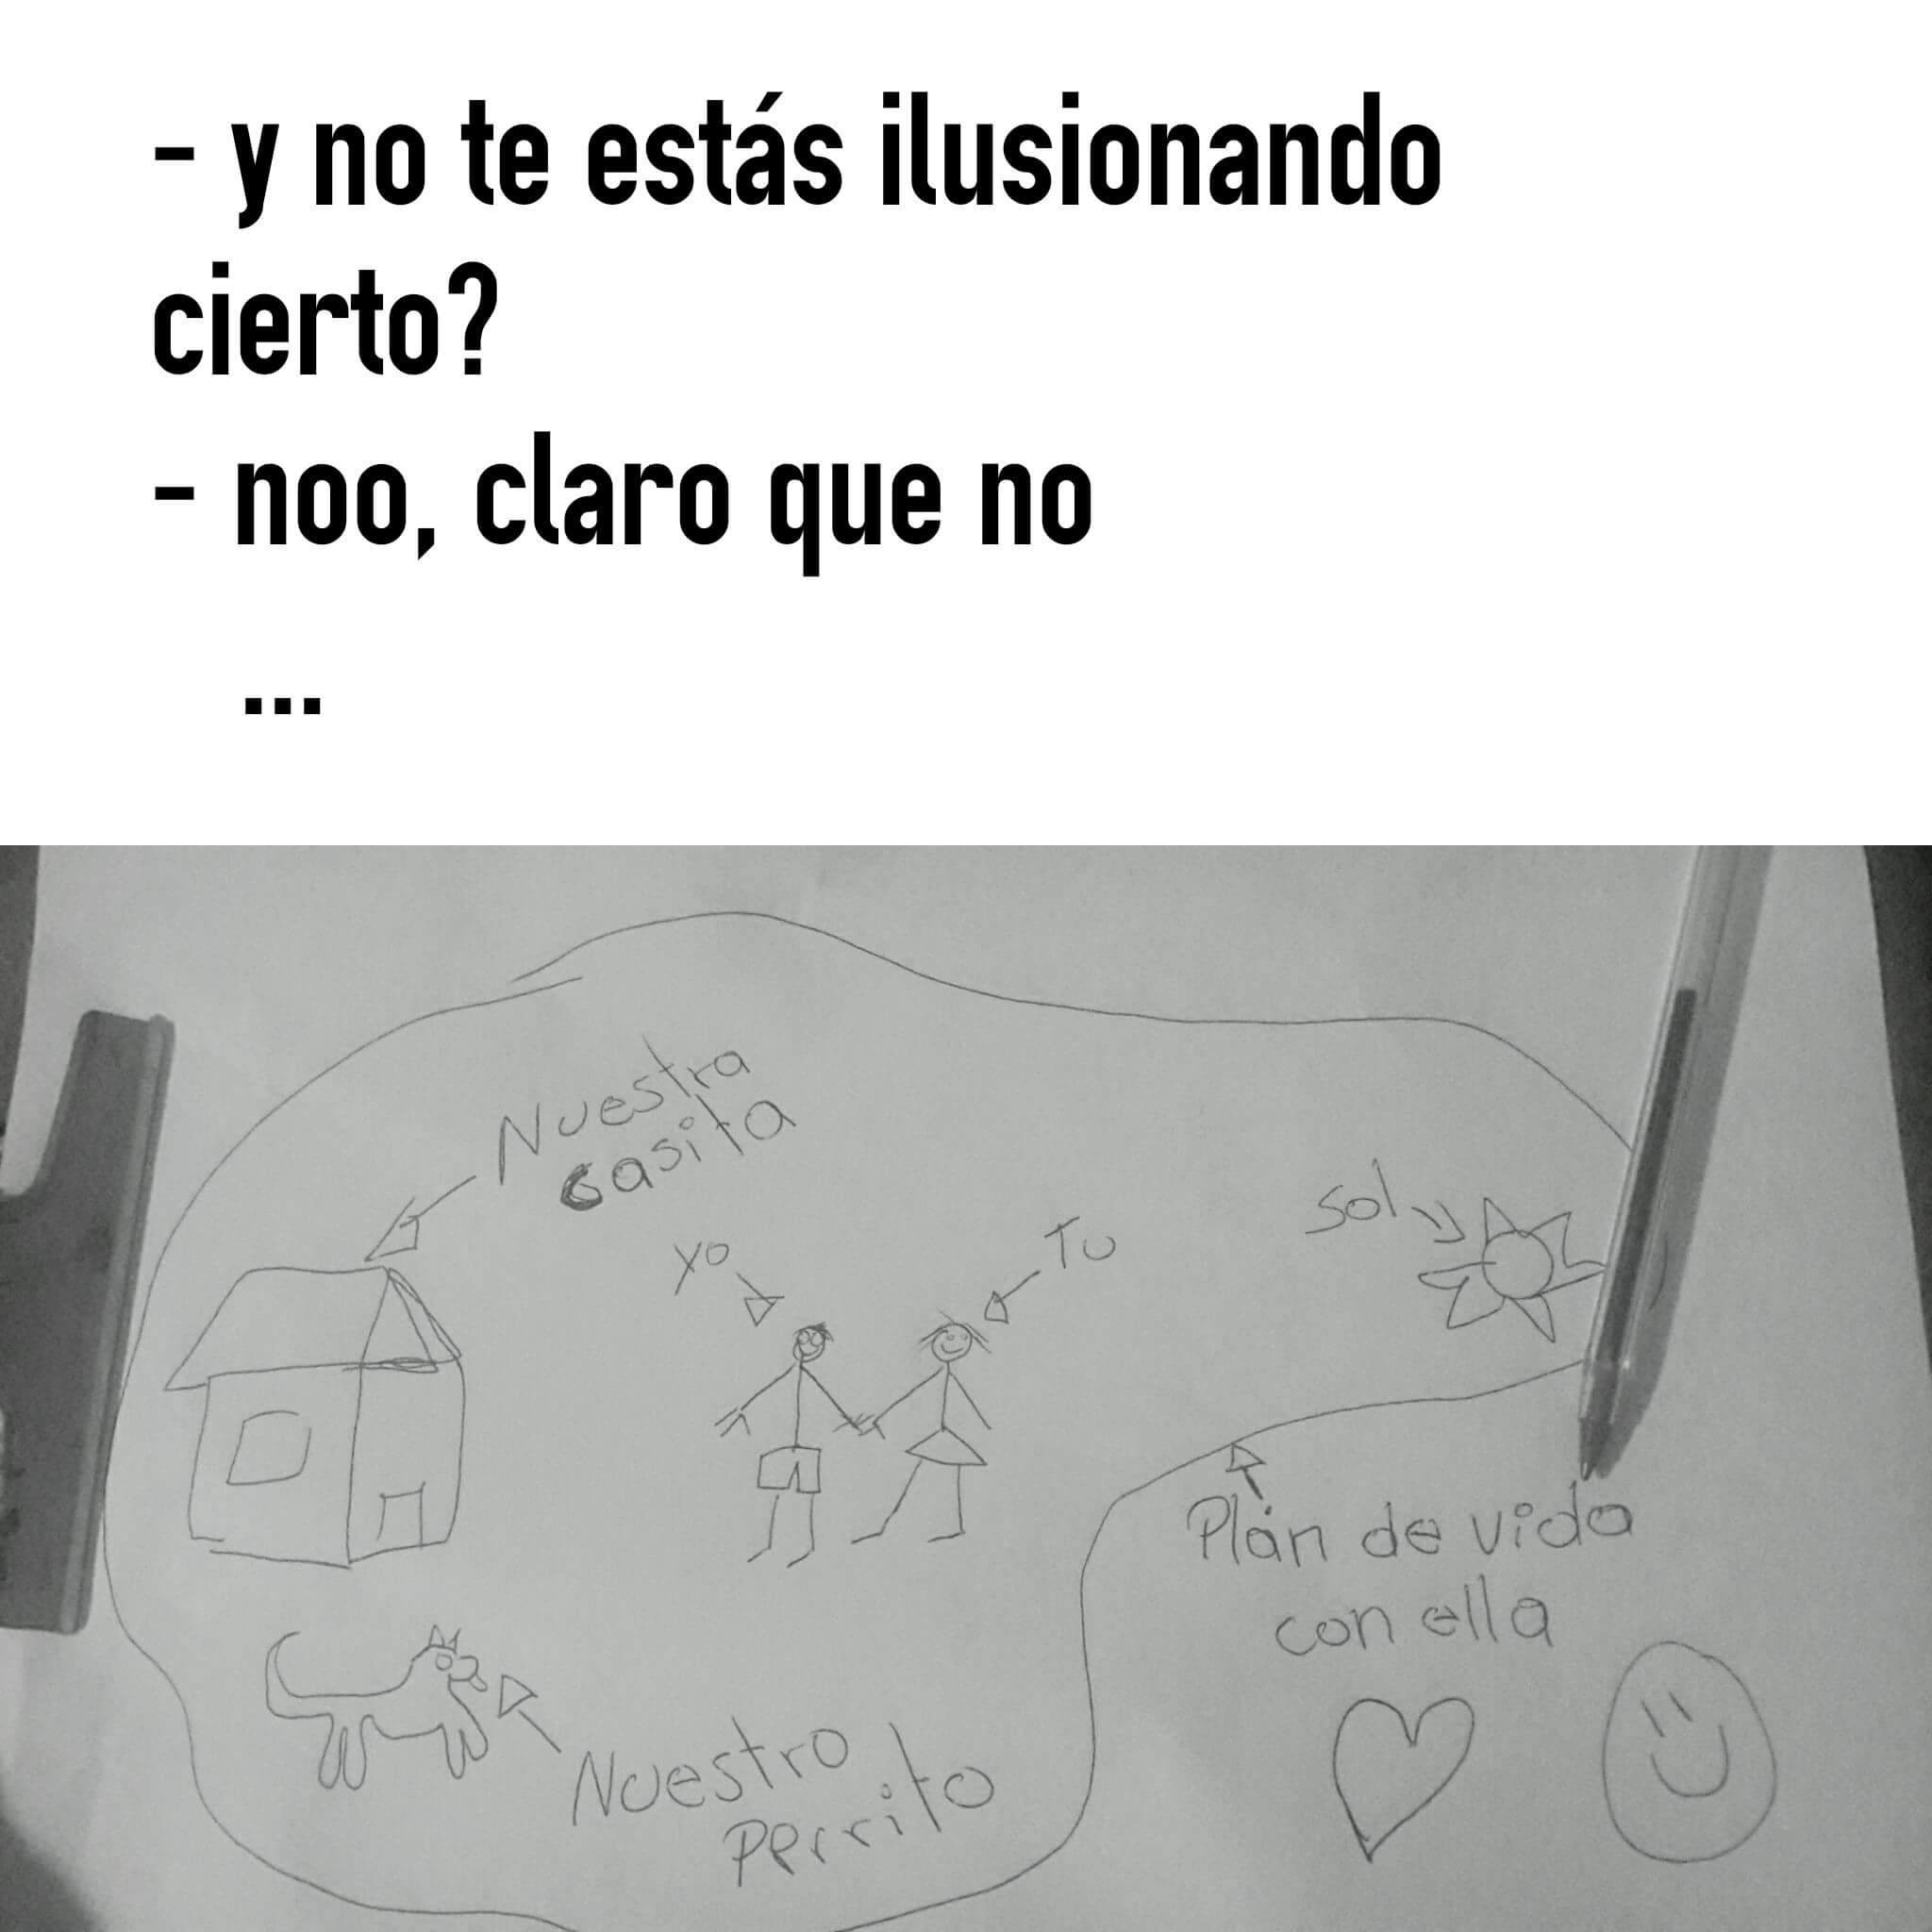 - y no te estás ilusionando
cierto?
- noo, claro que no
...
Nuestra
casita
yo
Tu
sol
Plan de vida
con ella
Nuestro
perrito